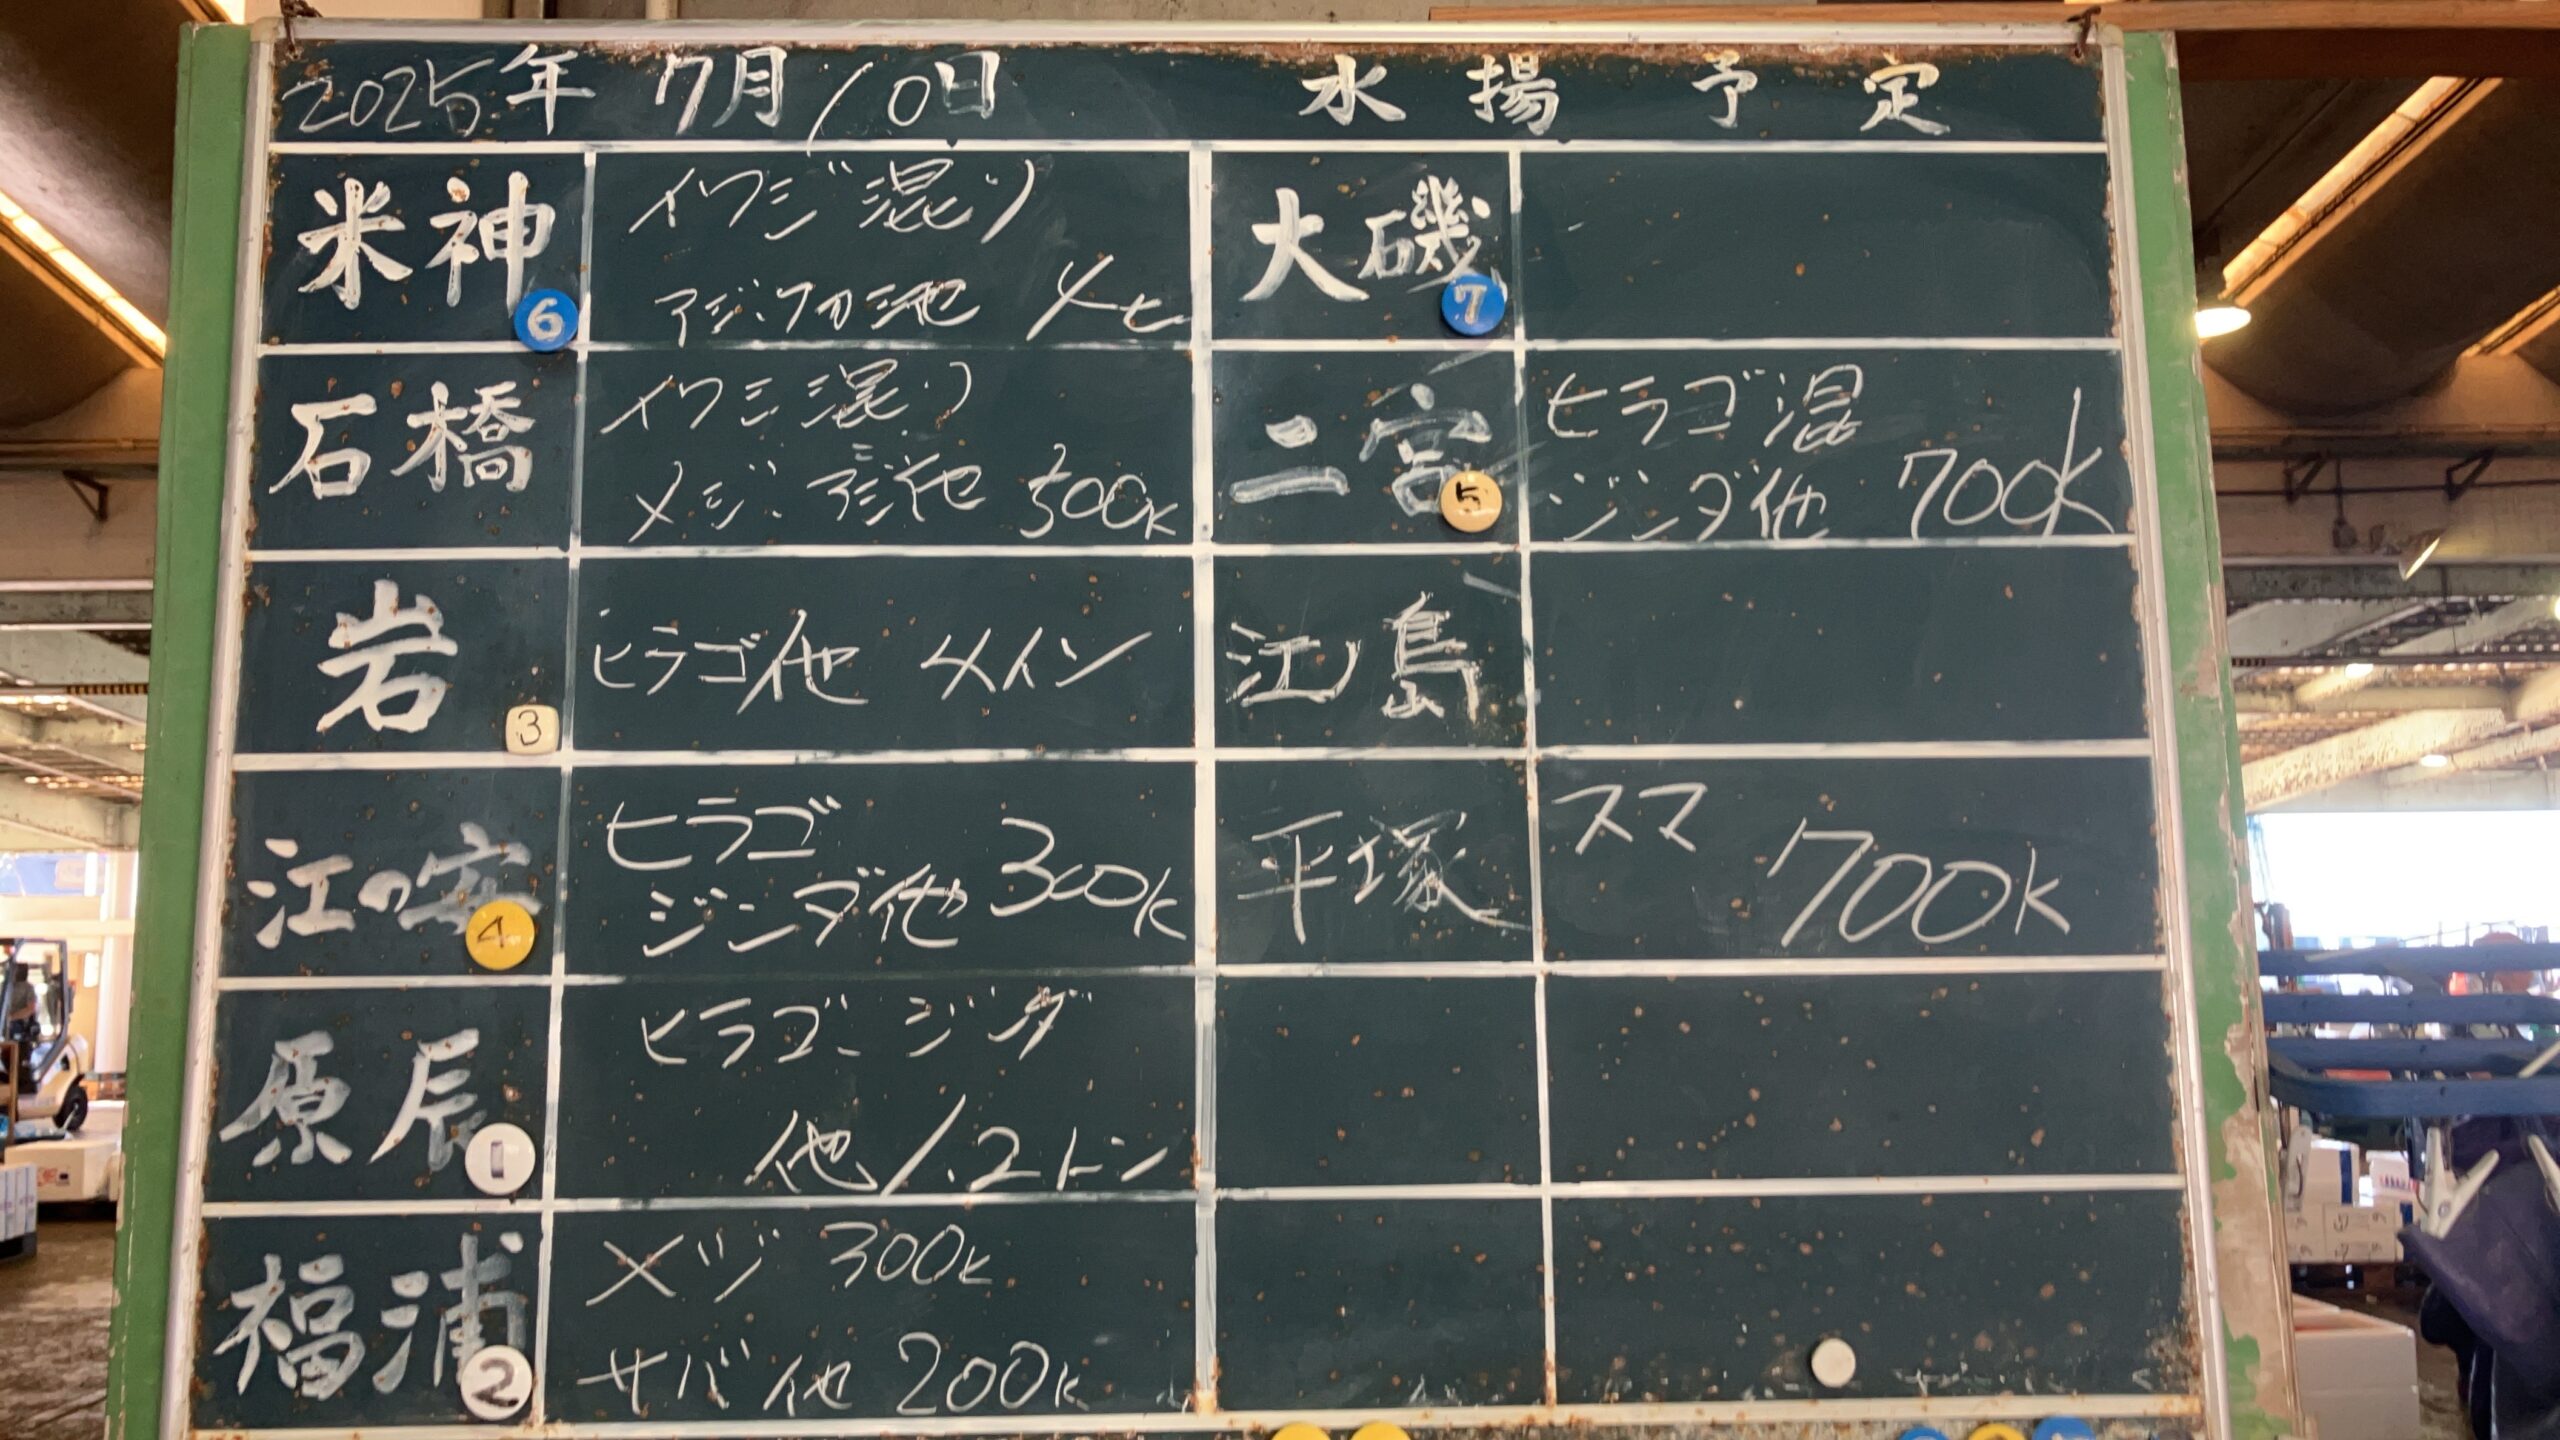 2025年 7月10日 水揚予定
米神 6
イワシ混り
アジ、ワカシ他
石橋
イワシ混り
メジ、アジ他 500K
岩 3
ヒラゴ他
江の安 4
ヒラゴ
ジンダ他 300K
原辰 1
ヒラゴ、ジンダ
他 1.2トン
福浦 2
メジ 300K
サバ他 200K
大磯 7
二宮 5
ヒラゴ混
ジンダ他 700K
江島
平塚
スマ 700K